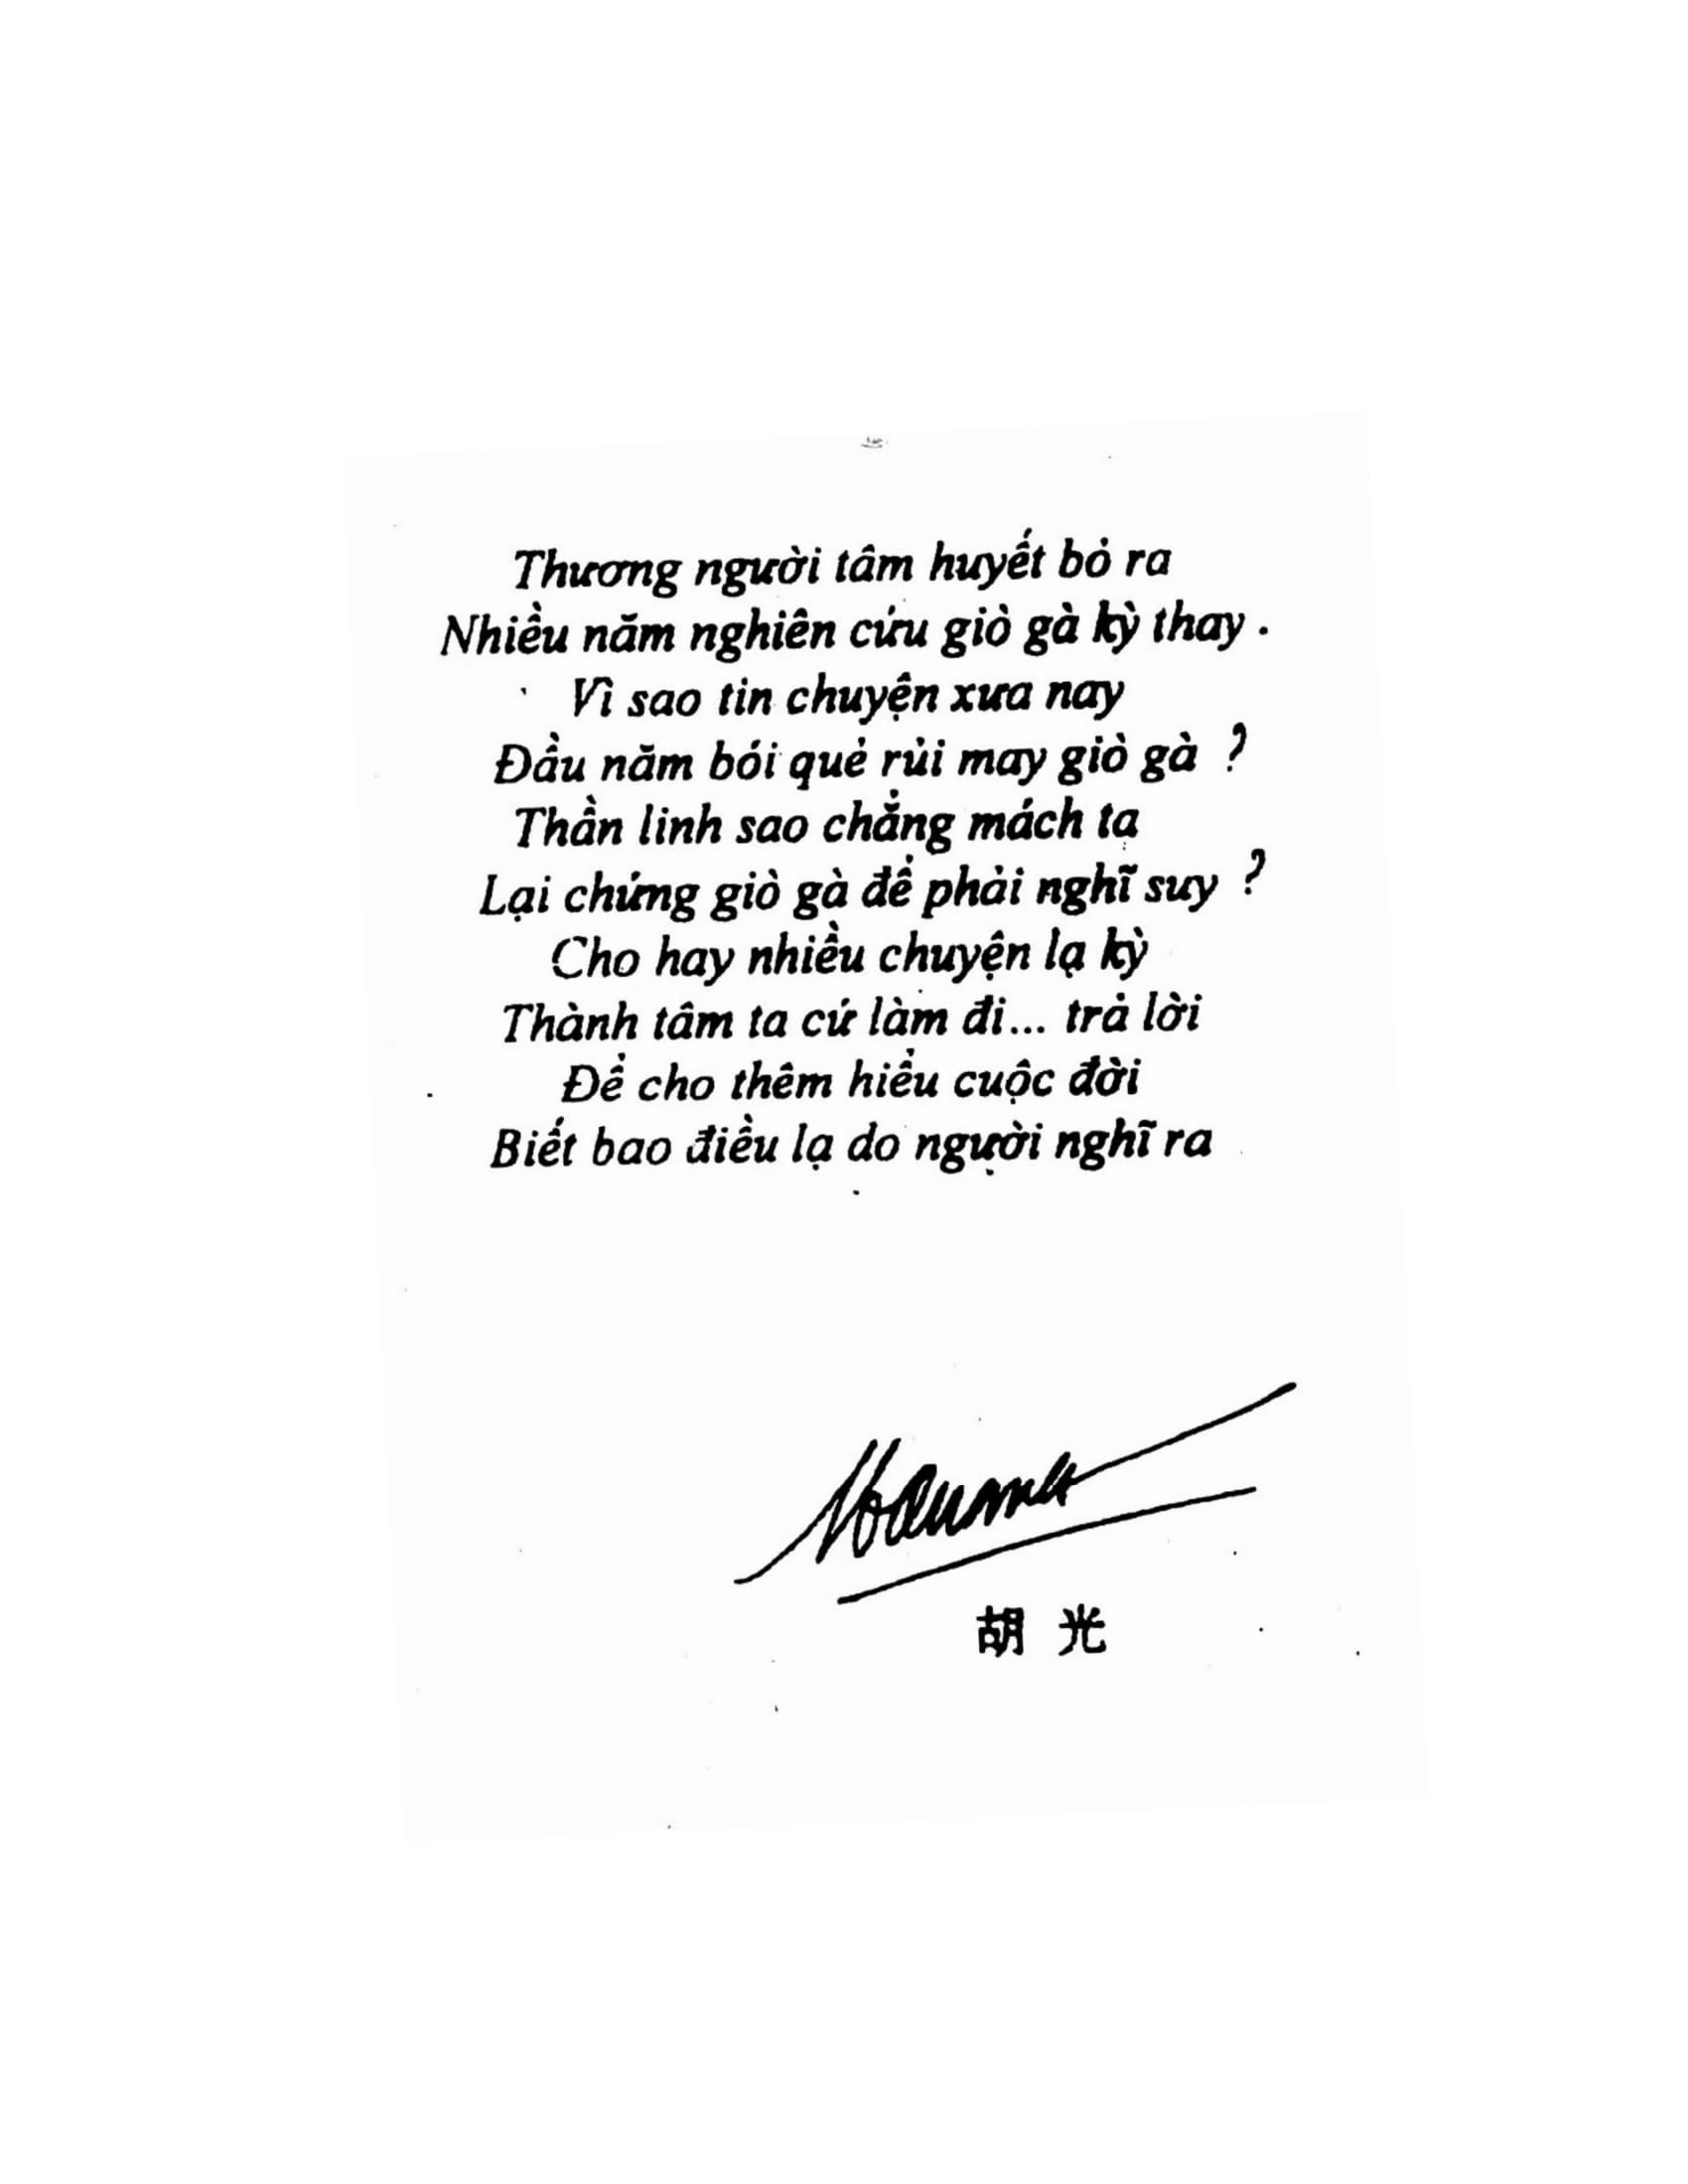 Thương người tâm huyết bỏ ra
Nhiều năm nghiên cứu giò gà kỳ thay .
Vì sao tin chuyện xưa nay
Đầu năm bói quẻ rủi may giò gà ?
Thần linh sao chẳng mách ta
Lại chứng giò gà để phải nghĩ suy ?
Cho hay nhiều chuyện lạ kỳ
Thành tâm ta cứ làm đi... trả lời
Để cho thêm hiểu cuộc đời
Biết bao điều lạ do người nghĩ ra
胡 光